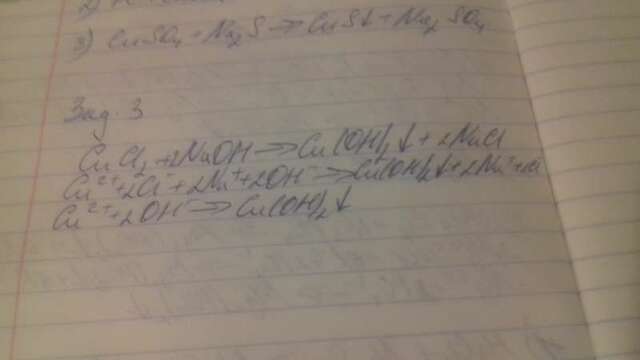 3) CuSO₄ + Na₂S → CuS↓ + Na₂SO₄
Зад. 3
CuCl₂ + 2NaOH → Cu(OH)₂↓ + 2NaCl
Cu²⁺ + 2Cl⁻ + 2Na⁺ + 2OH⁻ → Cu(OH)₂↓ + 2Na⁺ + 2Cl
Cu²⁺ + 2OH⁻ → Cu(OH)₂↓